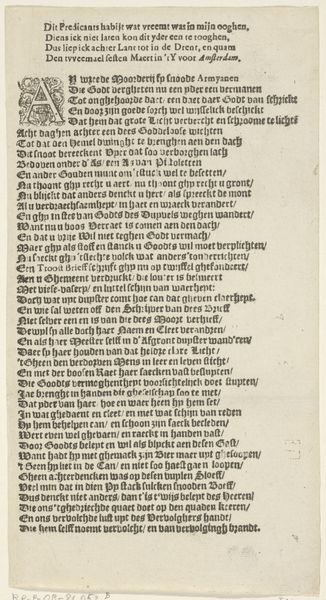 Dit Predicants habijt wat vreemt was in mijn ooghen,
Diens ick niet laten kon dit yder een te tooghen,
Dus liep ick achter Lant tot in de Drent, en quam
Den tvveemael sesten Maert in 't Y voor Amsterdam.
Ay wreede Moorderij sp snoode Armyanen
Die Godt vergheten nu een yder een vermanen
Tot onghehoorde daet, een daet daer Godt van schrickt
En door zijn goede sorch wel wijsselick beschickt
Dat hem dat grote Licht verbercht en schroome te lichte
Acht daghen achter een dees Goddeloose wichten
Tot dat den Hemel dwinght te brenghen aen den dach
Dit snoot verreetkent Vper dat soo verborghen lach
Bedoven onder d'As, een Ary van Pistoletten
En ander Gouden munt om 'tstuck wel te besetten,
Nu thoont ghy recht u aert, nu thont ghy recht u gront,
Nu blijckt dat anders denckt u hert, als spreeckt de mont
Al u verdraechsaemheyt, in haet en wraeck verandert,
En ghy in stee van Godts des Duyvels weghen wandert,
Want nu u boos Verraet is comen aen den dach,
En dat u vrije Wil niet teghen Godt vermach,
Maer ghy als stoff en stanck u Goodts wil moet verplichten,
Nu spreckt ghy 'tslechte volck wat anders t'onderrichten,
Een Troost Brieff schrijft ghy nu op twijffel ghefondeert,
Aen u Ghemeent verdruckt, die louter is beswaert
Met viese-vasery, en luttel schijn van waerheyt:
Doch wat uyt duyster comt hoe can dat gheven claerheyt.
En wie sal weten off den Schrijver van dees Brieff
Niet selver een en is van die dees Moort verhieff,
Dewijl sy alle doch haer Naem en Cleet veranderen,
En als haer Meester selff in d'Afgront duyster wand'ren,
Daer sy haer houden van dat heldre clare Licht,
'tGheen den verdorven Mens in leer en leven sticht,
En met der boosen Raet haer saecken vast bestupten,
Die Goodts vermoghentheyt voorsichtelijck doet stupten,
Jae brenght in handen die gheselschap soo te met,
Dat yder van haer, hoe en waer heen hy hem set,
In wat ghedaent en cleet, en met wat schijn van reden
Hy hem behelpen can, en schoon zijn saeck becleden,
Wert even wel ghevaen, en raeckt in handen vast,
Door Goodts beleyt en wil als blijckt aen desen Gast,
Want hadt hy met ghemack zijn Bier maer uyt gheloopen,
't Geen hy liet in de Can, en niet soo haest gaen loopen,
Gheen achterdencken was op desen vuylen Sloeff,
Veel min dat in dien Py stack sulcken snooden Boeff,
Dus denckt niet anders, dan t'is t'wijs beleyt des Heeren,
Die ons 'tghedreychde quaet doet op den quaden keeren,
En ons vervolchde lust uyt des Vervolghers handt,
Die hem selff noemt vervolcht, en van vervolgingh brandt.